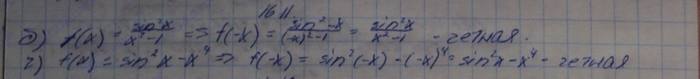 16 11.
б) f(x) = sin²x / x²-1 => f(-x) = (sin²-x / x)²-1 = sin²x / x²-1 - четная.
г) f(x) = sin²x - x⁴ => f(-x) = sin²(-x) - (-x)⁴ = sin²x - x⁴ - четная